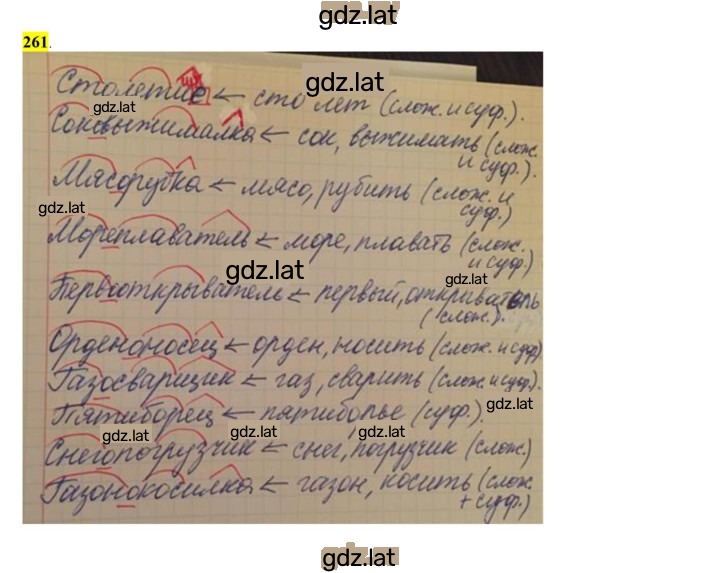 gdz.lat
261.
gdz.lat
Столетие ← сто лет (слож. и суф.).
gdz.lat
Соковыжималка ← сок, выжимать (слож.
и суф.).
Мясорубка ← мясо, рубить (слож. и
суф.)
gdz.lat
Мореплаватель ← море, плавать (слож.
и суф.)
gdz.lat
gdz.lat
Первооткрыватель ← первый, открыватель
(слож.).
Орденоносец ← орден, носить (слож. и суф)
Газосварщик ← газ, сварить (слож. и суф.).
Пятиборец ← пятиборье (суф.).
gdz.lat
gdz.lat
gdz.lat
gdz.lat
Снегопогрузчик ← снег, погрузчик (слож.)
Газонокосилка ← газон, косить (слож.
+ суф.)
gdz.lat